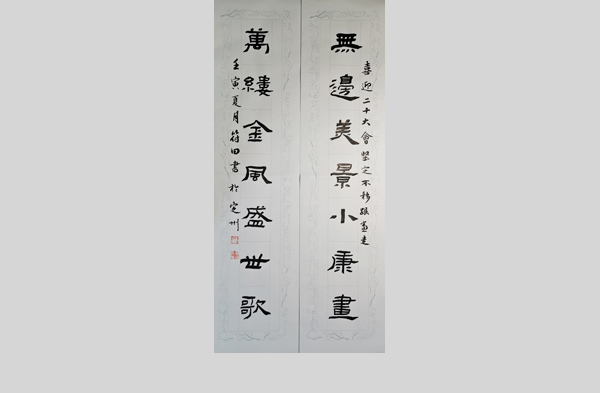 喜迎二十大會堅定不移跟黨走
無邊美景小康畫
萬縷金風盛世歌
壬寅夏月符田書於定州